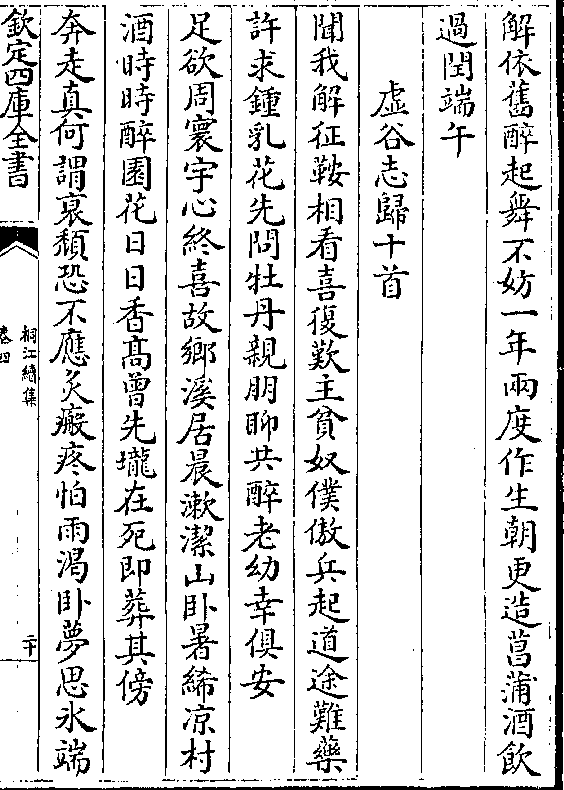 解依舊醉起舞不妨一年兩度作生朝更造菖蒲酒飲
過閏端午
虛谷志歸十首
聞我解征鞍相看喜復歎主貧奴僕傲兵起道途難藥
許求鍾乳花先問牡丹親朋聊共醉老幼幸俱安
足欲周寰宇心終喜故鄉溪居晨漱潔山卧暑絺凉村
酒時時醉園花日日香髙曾先壠在死即葬其傍
奔走真何謂衰頽恐不應灸瘢疼怕雨渴卧夢思氷端
欽定四庫全書
桐江續集
卷四
二十